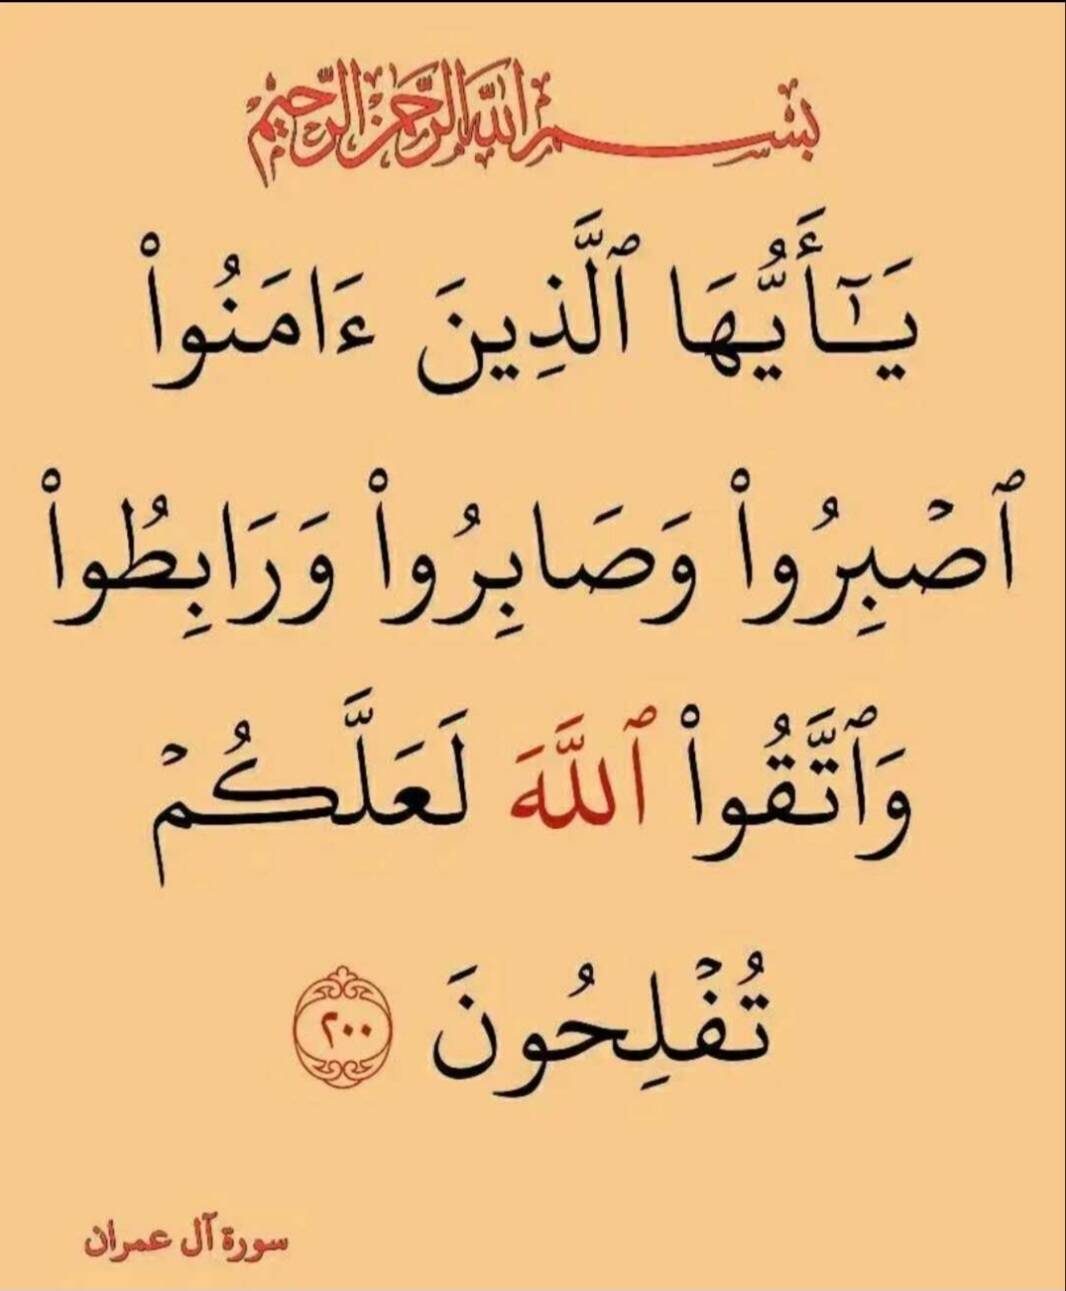 بسم الله الرحمن الرحيم
يَـٰٓأَيُّهَا ٱلَّذِينَ ءَامَنُوا۟
ٱصْبِرُوا۟ وَصَابِرُوا۟ وَرَابِطُوا۟
وَٱتَّقُوا۟ ٱللَّهَ لَعَلَّكُمْ
تُفْلِحُونَ ٢٠٠
سورة آل عمران